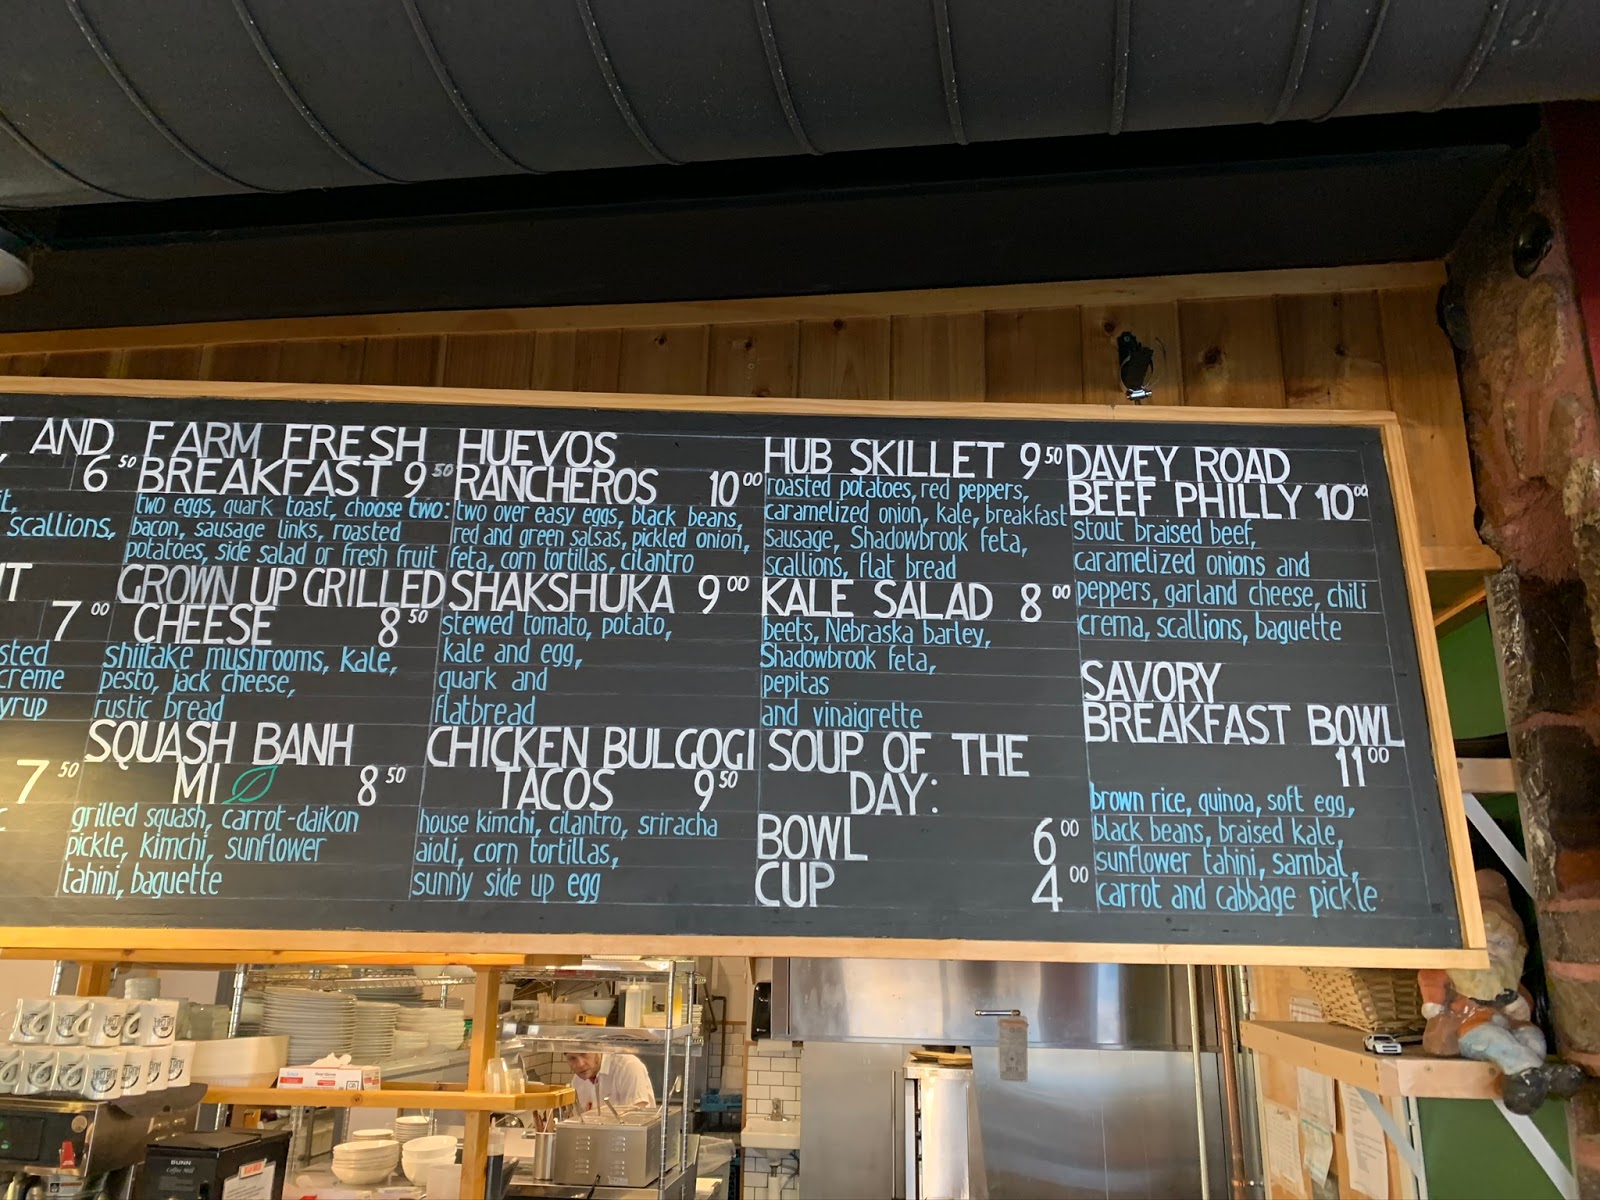 AND
6 50
scallions,
7 00
creme
7 50
FARM FRESH
BREAKFAST 9 50
two eggs, quark toast, choose two:
bacon, sausage links, roasted
potatoes, side salad or fresh fruit
GROWN UP GRILLED
CHEESE 8 50
shiitake mushrooms, kale,
pesto, jack cheese,
rustic bread
SQUASH BANH
MI 8 50
grilled squash, carrot-daikon
pickle, kimchi, sunflower
tahini, baguette
HUEVOS
RANCHEROS 10 00
two over easy eggs, black beans,
red and green salsas, pickled onion,
feta, corn tortillas, cilantro
SHAKSHUKA 9 00
stewed tomato, potato,
kale and egg,
quark and
flatbread
CHICKEN BULGOGI
TACOS 9 50
house kimchi, cilantro, sriracha
aioli, corn tortillas,
sunny side up egg
HUB SKILLET 9 50
roasted potatoes, red peppers,
caramelized onion, kale, breakfast
sausage, Shadowbrook feta,
scallions, flat bread
KALE SALAD 8 00
beets, Nebraska barley,
Shadowbrook feta,
pepitas
and vinaigrette
SOUP OF THE
DAY:
BOWL 6 00
CUP 4 00
DAVEY ROAD
BEEF PHILLY 10 00
stout braised beef,
caramelized onions and
peppers, garland cheese, chili
crema, scallions, baguette
SAVORY
BREAKFAST BOWL
11 00
brown rice, quinoa, soft egg,
black beans, braised kale,
sunflower tahini, sambal,
carrot and cabbage pickle
BUNN